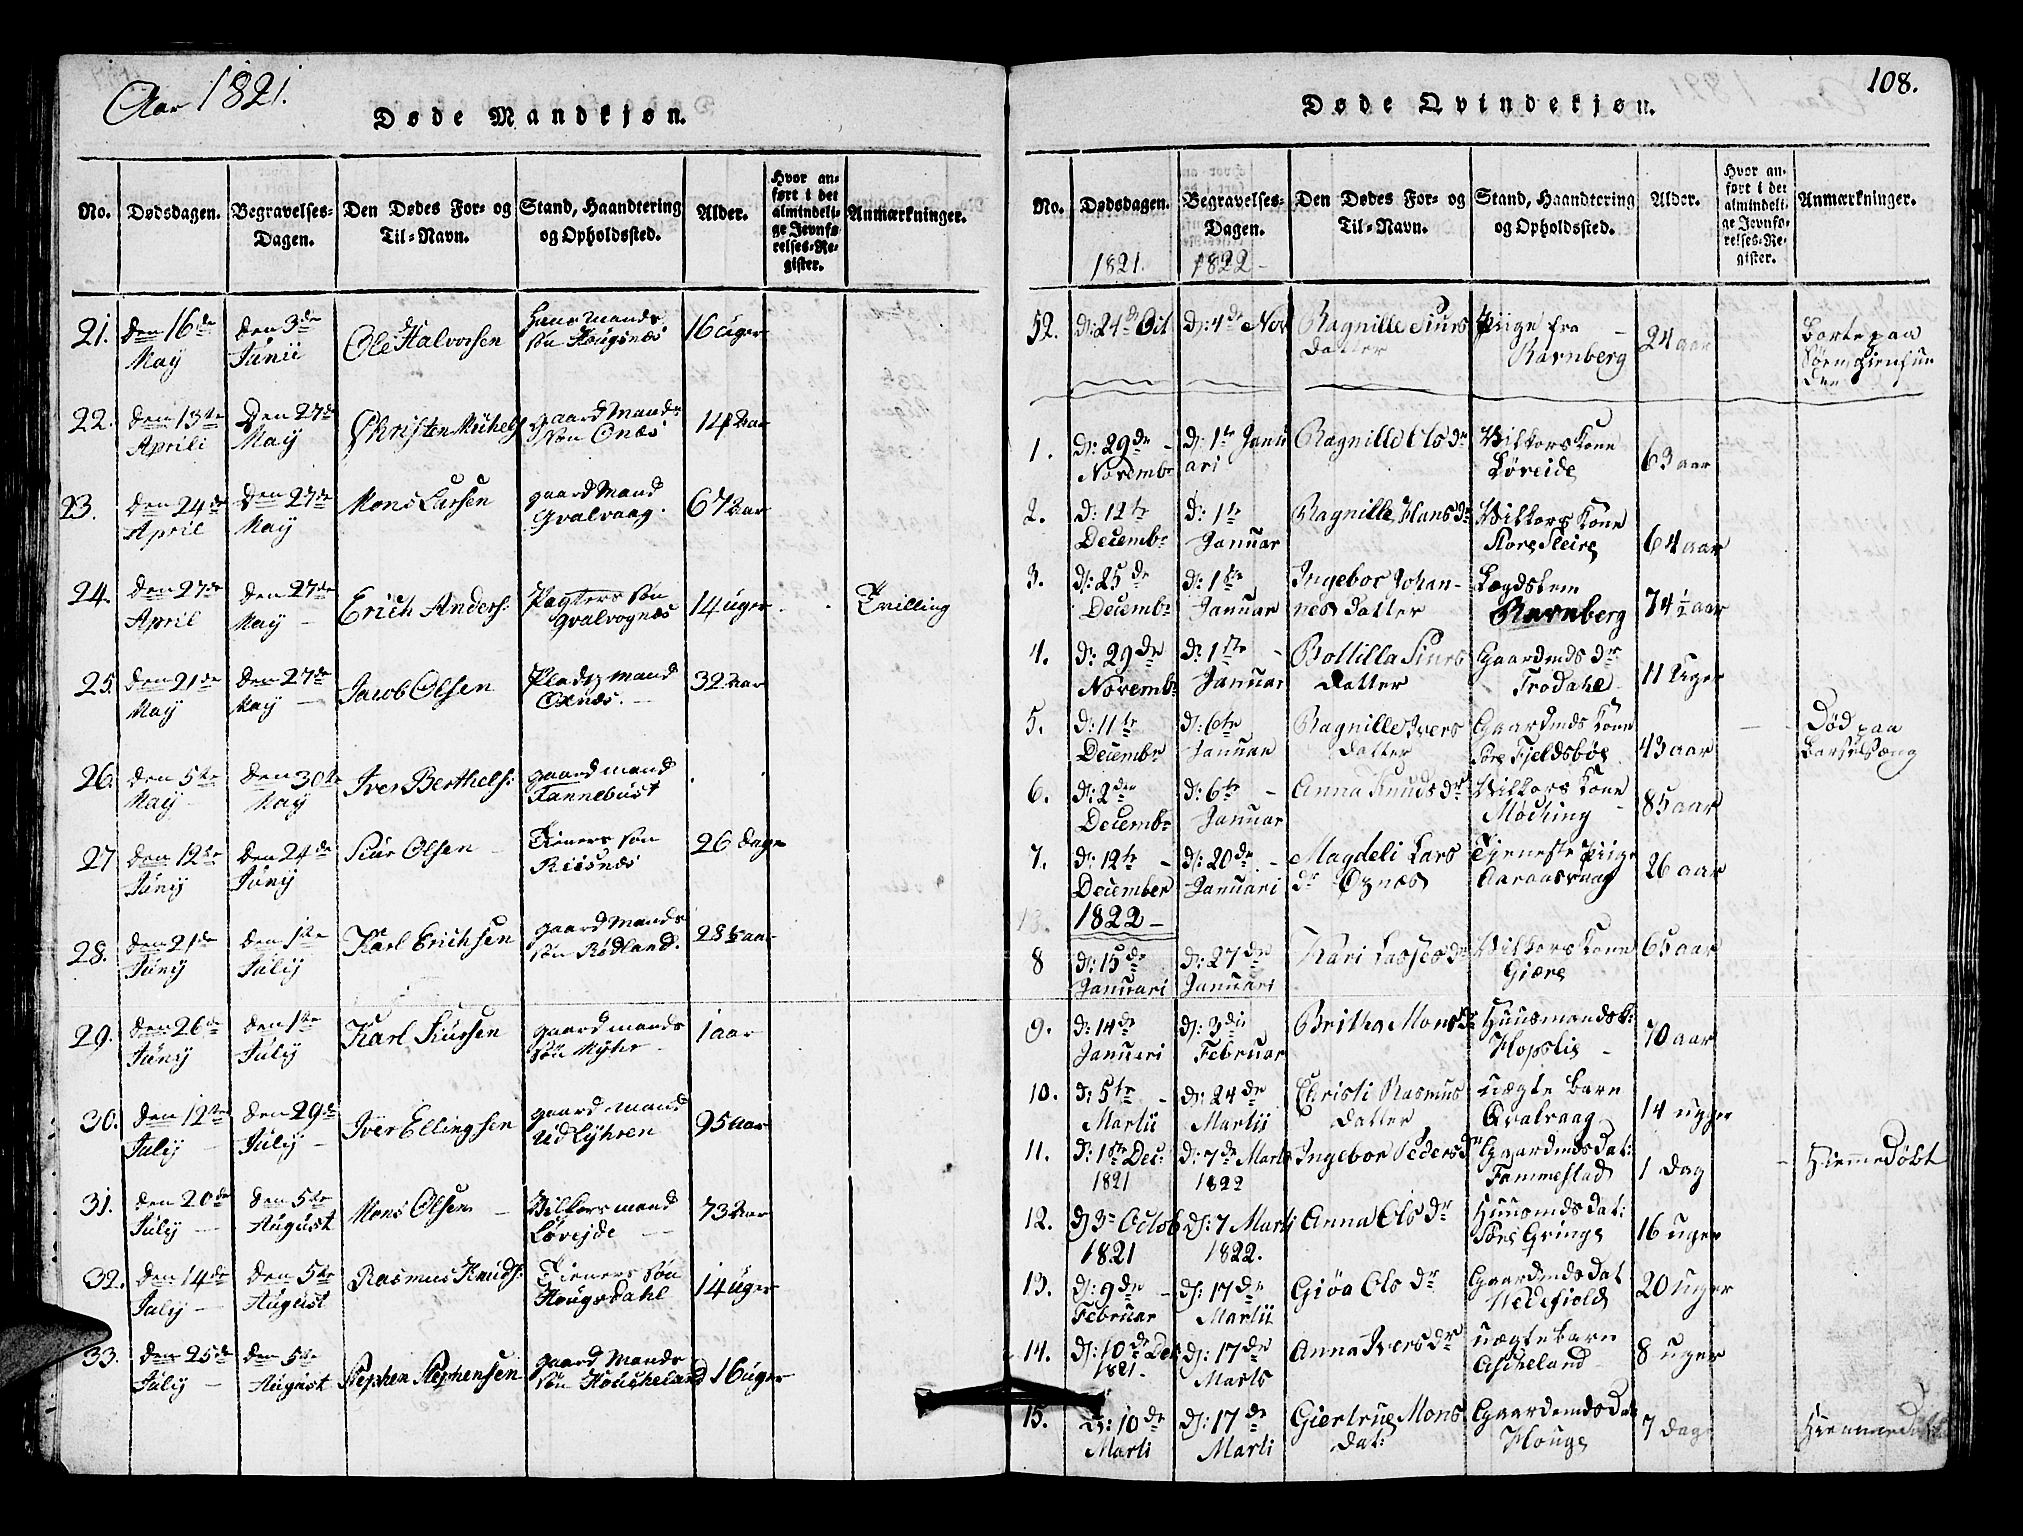 Aar 1821.
Døde Mandkjøn.
No. Dødsdagen. Begravelses-Dagen. Den Dødes For- og Til-Navn. Stand, Haandtering og Opholdssted. Alder. Hvor anført i det almindelige Jevnførelses-Register. Anmærkninger.
21. den 16de May den 3de Junii Ole Halvorsen Huusmands søn Hougsnæs 16 uger
22. den 13te Aprili Den 27de May Christen Michels gaard Mands søn Onæs 14 aar
23. den 24de April Den 27de May Mons Larsen gaard Mand Qvalvaag. 67 aar
24. den 27de April den 27de May Erich Anders: Pagters søn Qvalvognæs 14 uger Tvilling
25. den 21de May den 27de May Jacob Olsen Pladsz mand Oxnæs. 32 aar
26. den 5te May den 30te May Iver Berthels: gaard mand Tannebust
27 den 12te Juny den 24de Juny Siur Olsen Tieners søn Riisnæs 26 dage
28. den 21de Juny den 1te July Karl Erichsen gaard Mands søn Rødland. 28 aar
29. den 26de Juny den 1te July Karl Siursen gaard mands søn Myhr 1 aar
30. den 12te July den 29de July Iver Ellingsen gaard mand Udlyhren 95 aar
31. den 20de July den 5te August Mons Olsen Vilkors mand Løvejde 73 aar
32. den 14de July den 5te August Rasmus Knuds: Tieners søn Hougsdahl 14 uger
33. den 25de July den 5te August Stephen Stephensen gaard Mands søn Houcheland 16 uger
108.
Døde Qvindekjøn.
No. Dødsdagen. Begravelses-Dagen. Den Dødes For- og Til-Navn. Stand, Haandtering og Opholdssted. Alder. Hvor anført i det almindelige Jevnførelses-Register. Anmærkninger.
1821. 1822
52. D: 24de Oct D: 4de Nov Ragnille Siurs datter Piige fra Ravnberg 24 aar Borte paa
1. D: 29de Novembr D: 1te Januari Ragnille Ols dr Vilkors Kone Løveide 63 aar
2. D: 12te Decembr D: 1te Januar Ragnille Hans dr Vilkors Kone Store Fleire 64 aar
3. D: 25de Decembr D: 1te Januar Ingebor Johannes datter Lægdslem Ravnberg 74½ aar
4. D: 29de Novembr D: 1te Januar Bollilla Siurs datter Gaardmds dr Frodahl 11 Uger
5. D: 11te Decembr D: 6te Januar Ragnille Ivers datter Gaardmds Kone Søre Fjeldsbøe 43 aar Død paa Barselsæng
6. D: 2den Decembr D: 6te Januar Anna Knuds dr Vilkors Kone Møcking 85 aar
7. D: 12te December D: 20de Januari Magdeli Lars dr Øxnæs Tjeneste Piige Aaraasvaag 26 aar
13. 1822
8 D: 15de Januari D: 27de Januari Kari Lasses dr Vilkors Kone Giære 65 aar
9. D: 14de Januari D: 3die Februar Britha Mons dr Huusmands K: Hopslie 70 aar
10. D: 5te Martii D: 24de Martii Christi Rasmus datter uægte barn Qvalvaag 14 uger
11. D: 1ste Dec: 1821 D: 7de Marts 1822 Ingebor Peders dr Gaardmds dat: Fammestad 1 dag Hiemmedøbt
12. D 3de Octob 1821 D: 7 Marti 1822. Anna Ols dr Huusmds dat: Søre Qvinge 16 uger
13. D: 9de Februar D: 17de Martii Giøa Ols dr Gaardmds dat Hedefiold 20 uger
14. D: 10de Dec 1821. D: 17de Marts Anna Ivers dr uægte barn Ascheland 8 uger
15. D: 10de Marti D: 17de Marti Giertrue Mons dat: Gaardemds dat Houge 7 dag Hiemmedøbt